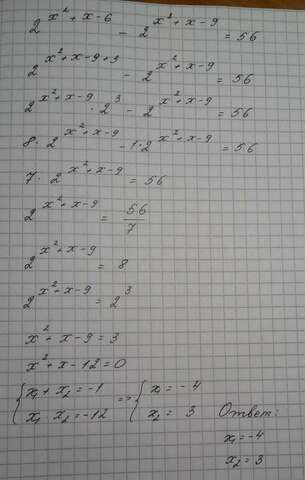 2^{x²+x-6} - 2^{x²+x-9} = 56
2^{x²+x-9+3} - 2^{x²+x-9} = 56
2^{x²+x-9} · 2³ - 2^{x²+x-9} = 56
8 · 2^{x²+x-9} - 1 · 2^{x²+x-9} = 56
7 · 2^{x²+x-9} = 56
2^{x²+x-9} = 56/7
2^{x²+x-9} = 8
2^{x²+x-9} = 2³
x²+x-9 = 3
x²+x-12 = 0
{ x₁+x₂ = -1 => { x₁ = -4
{ x₁ x₂ = -12 { x₂ = 3 Ответ:
x₁ = -4
x₂ = 3